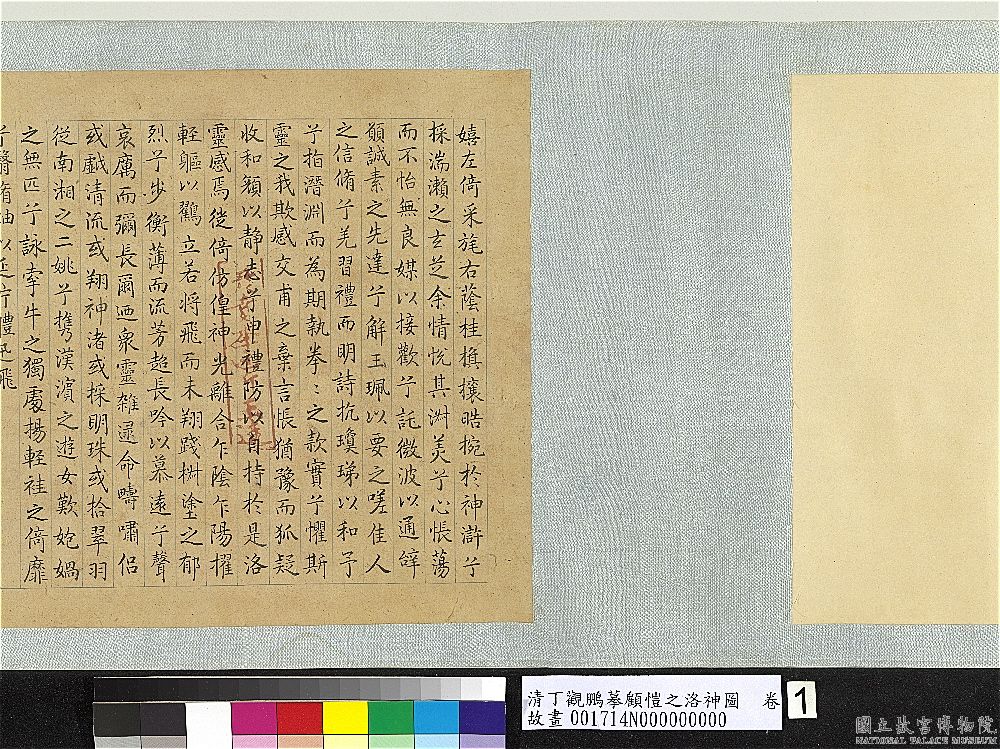 嬉左倚采旄右蔭桂旗攘皓捥於神滸兮
採湍瀨之玄芝余情悦其淑美兮心悵蕩
而不怡無良媒以接歡兮託微波以通辭
願誠素之先達兮解玉珮以要之嗟佳人
之信脩兮羌習禮而明詩抗瓊珶以和予
兮指潛淵而為期執拳〻之款實兮懼斯
靈之我欺感交甫之棄言悵猶豫而狐疑
收和顏以静志兮申禮防以自持於是洛
靈感焉徙倚彷徨神光離合乍陰乍陽擢
輕軀以鶴立若將飛而未翔踐椒塗之郁
烈兮步衡薄而流芳超長吟以慕遠兮聲
哀厲而彌長爾迺衆靈雜遝命疇嘯侶
或戲清流或翔神渚或採明珠或拾翠羽
從南湘之二姚兮携漢濱之遊女歎匏媧
之無匹兮詠牽牛之獨處揚輕袿之倚靡
兮翳脩袖以延佇體迅飛
清丁觀鵬摹顧愷之洛神圖 卷
故畫 001714N000000000
1
國立故宮博物院
NATIONAL PALACE MUSEUM